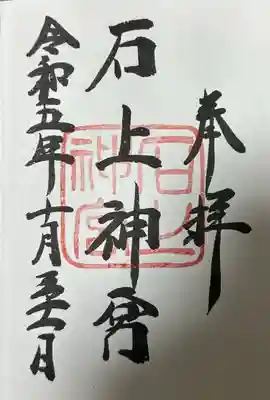 奉拝
石上神宮
令和五年十月二十一日
石上神宮